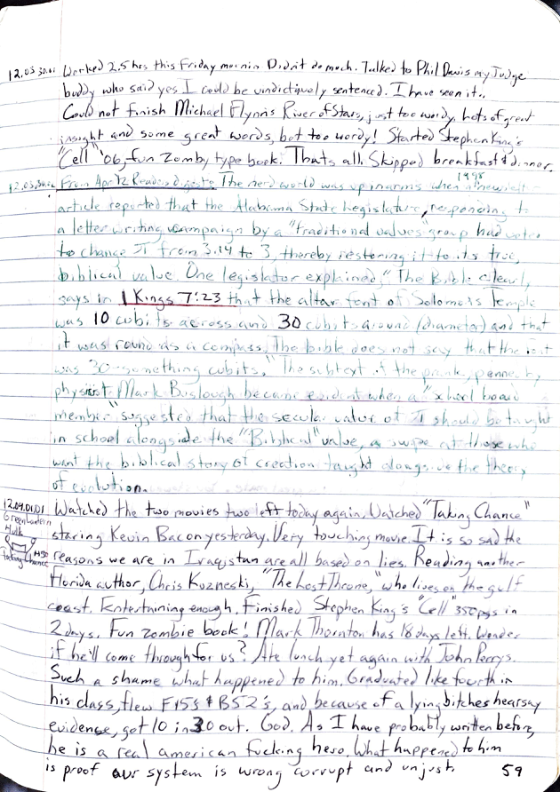 12.03.30.01 Worked 2.5 hrs this Friday mornin. Didn't do much. Talked to Phil Davis my Judge
buddy who said yes I could be vindictively sentenced. I have seen it..
Could not finish Michael Flynn's River of Stars, just too wordy, lots of great
insight and some great words, but too wordy! Started Stephen King's
"Cell" '06, fun zomby type book. That's all. Skipped breakfast & dinner.
12.03.30.02 From Apr 12 Readers digest: The nerd world was up in arms when a 1998
article reported that the Alabama State Legislature, responding to
a letter writing campaign by a "traditional values" group had voted
to change π from 3.14 to 3, thereby restoring it to its true,
biblical value. One legislator explained, "The Bible clearly
says in 1 Kings 7:23 that the altar font of Solomon's Temple
was 10 cubits across and 30 cubits around (diameter) and that
it was round as a compass. The bible does not say that the font
was 30-something cubits." The subtext of the prank, penned by
physicist Mark Boslough became evident when a "school board
member" suggested that the secular value of π should be taught
in school alongside the "Biblical" value, a swipe at those who
want the biblical story of creation taught alongside the theory
of evolution.
12.04.01.01 Watched the two movies two left today again. Watched "Taking Chance"
staring Kevin Bacon yesterday. Very touching movie. It is so sad the
Green Lantern
HBO
Taking Chance
reasons we are in Iraqistan are all based on lies. Reading another
Florida author, Chris Kuzneski, "The Lost Throne," who lives on the gulf
coast. Entertaining enough. Finished Stephen King's "Cell" 350pgs in
2 days. Fun zombie book! Mark Thornton has 18 days left. Wonder
if he'll come through for us? Ate lunch yet again with John Perrys.
Such a shame what happened to him. Graduated like fourth in
his class, flew F15s & B52's, and because of a lying bitches hearsay
evidence, got 10 in 30 out. God. As I have probably written before,
he is a real american fucking hero. What happened to him
is proof our system is wrong corrupt and unjust. 59